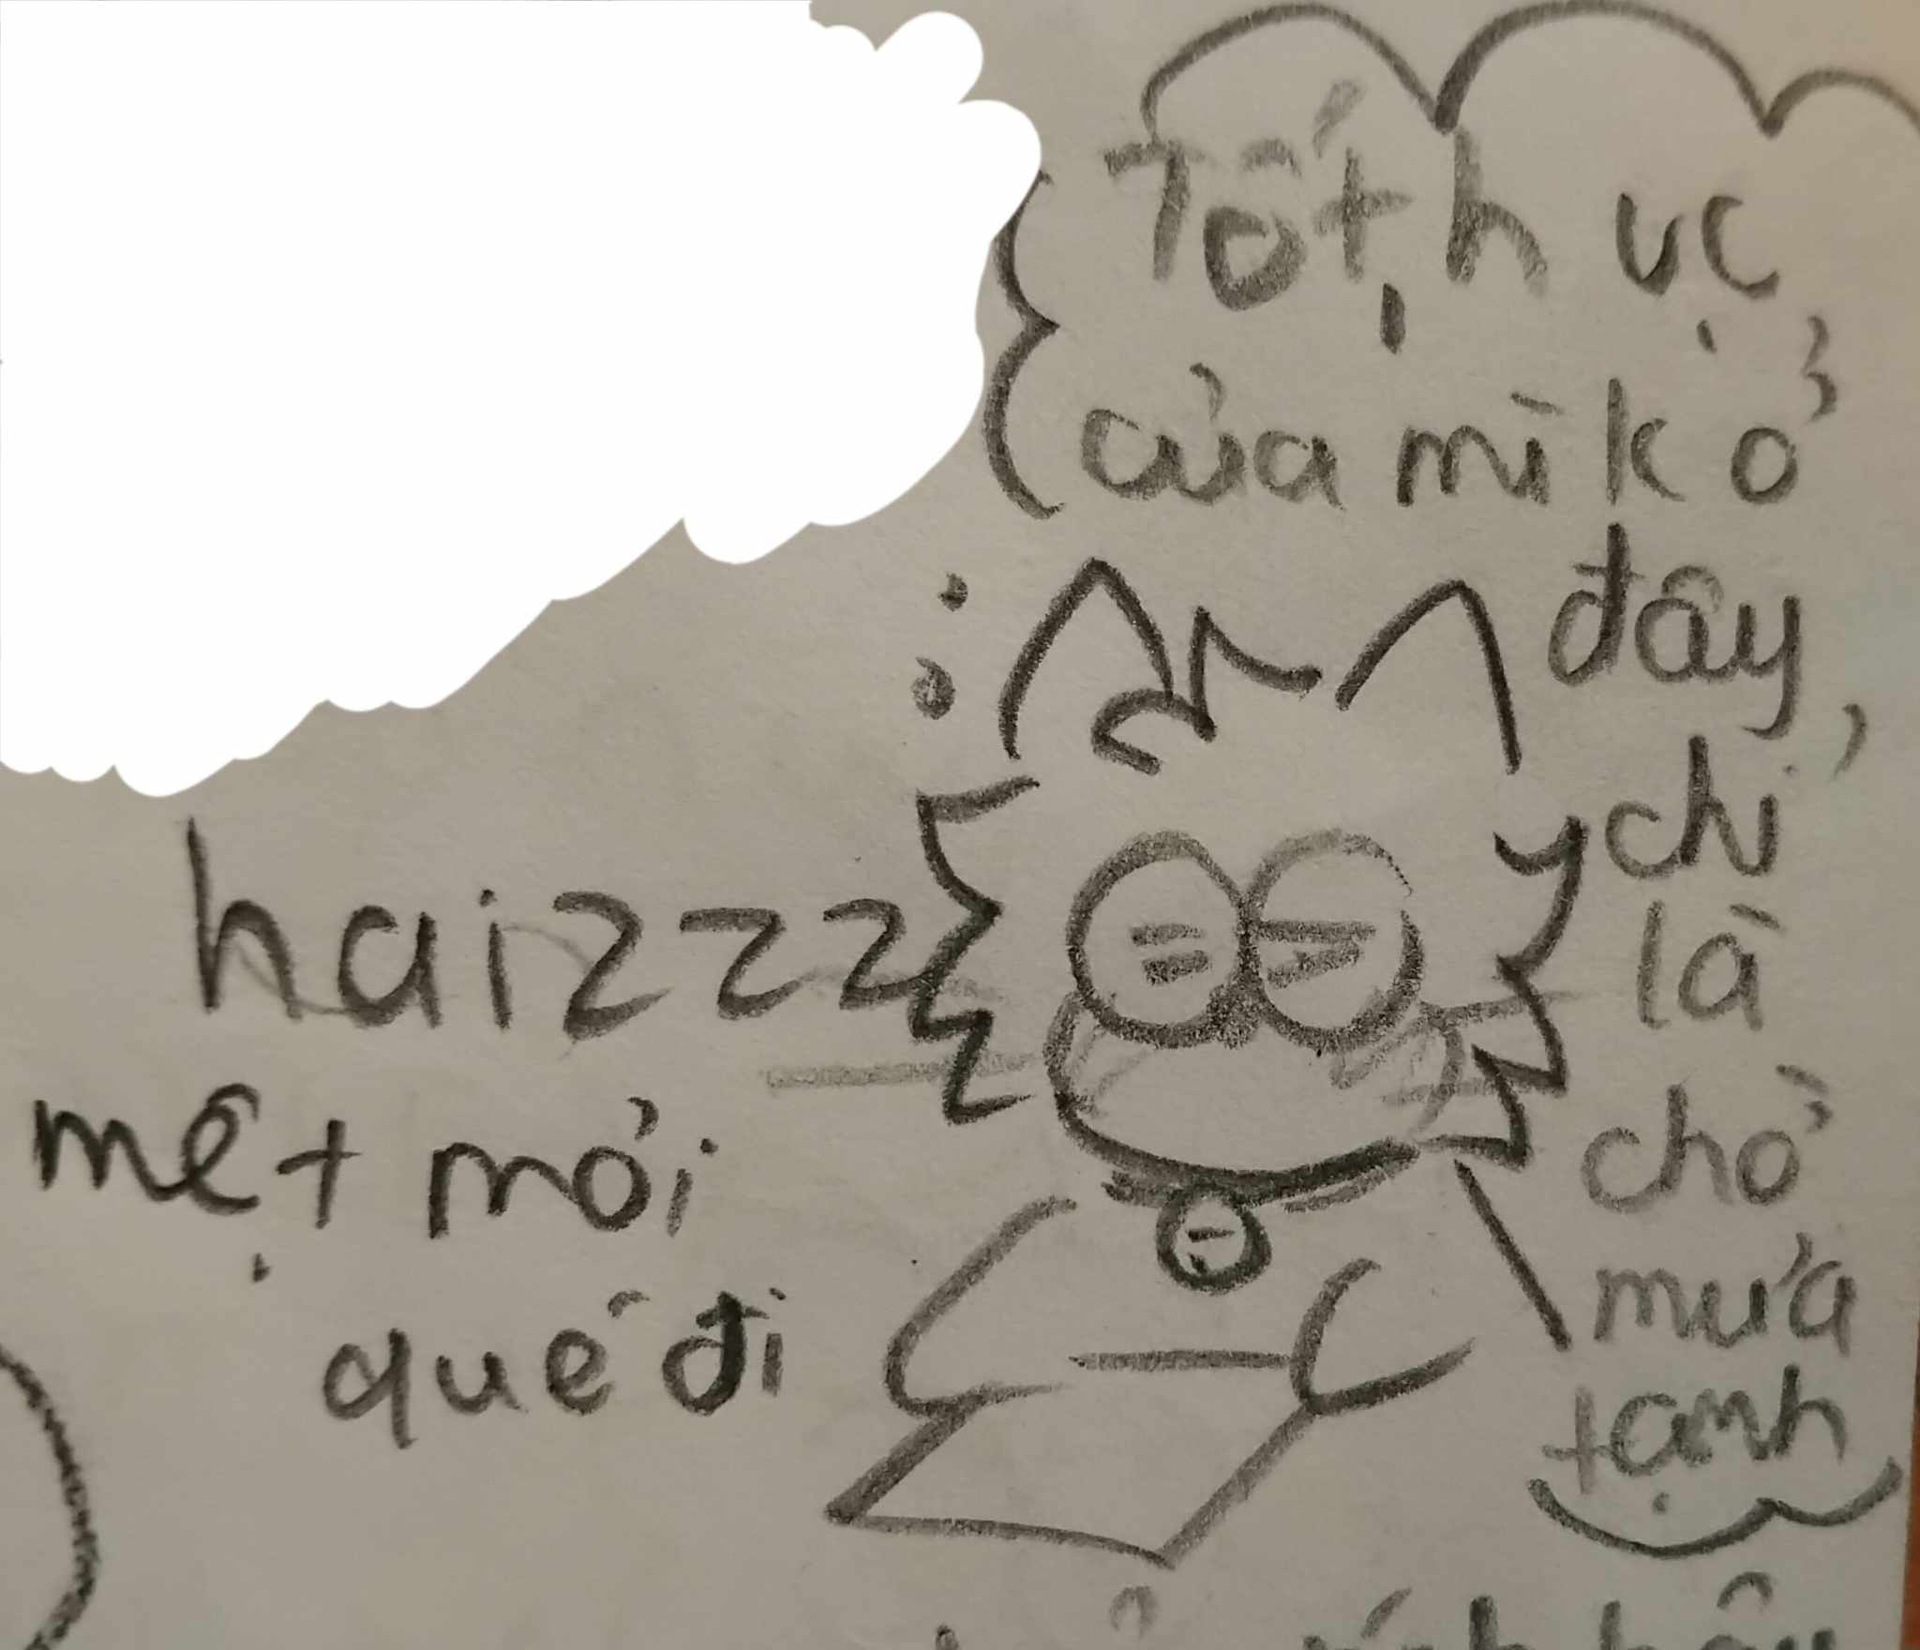 Tốt, h vị
của mì k ở
đây,
chỉ
là
chờ
mưa
tạnh
haizzz
mệt mỏi
quế đi